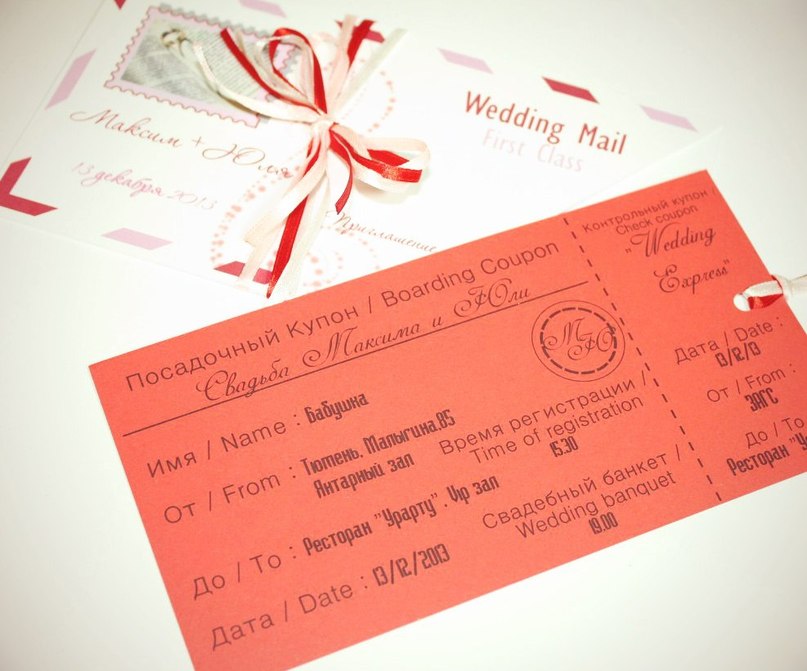 Максим + Юля
13 декабря 2013
Wedding Mail
First Class
Приглашение
Посадочный Купон / Boarding Coupon
Свадьба Максима и Юли
М Ю
Имя / Name : Бабушка
От / From : Тюмень. Малыгина.85
Янтарный зал
Время регистрации /
Time of registration
15.30
До / To : Ресторан "Урарту" . Vip зал
Свадебный банкет /
Wedding banquet
19.00
Дата / Date : 13/12/2013
Контрольный купон
Check coupon
"Wedding
Express"
Дата / Date :
13/12/13
От / From :
ЗАГС
До / To
Ресторан "У